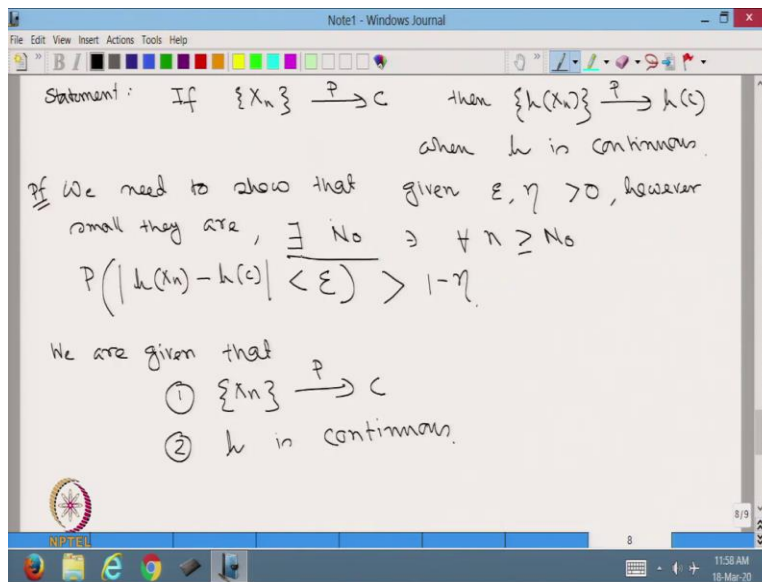 Note1 - Windows Journal
File Edit View Insert Actions Tools Help
B I
Statement: If {Xn} P→ C then {h(Xn)} P→ h(c)
when h is continuous.
Pf We need to show that given ε, η > 0, however
small they are, ∃ No ∋ ∀ n ≥ No
P(|h(Xn) - h(c)| < ε) > 1-η
We are given that
① {Xn} P→ C
② h is continuous.
8/9
NPTEL
8
11:58 AM
18-Mar-20